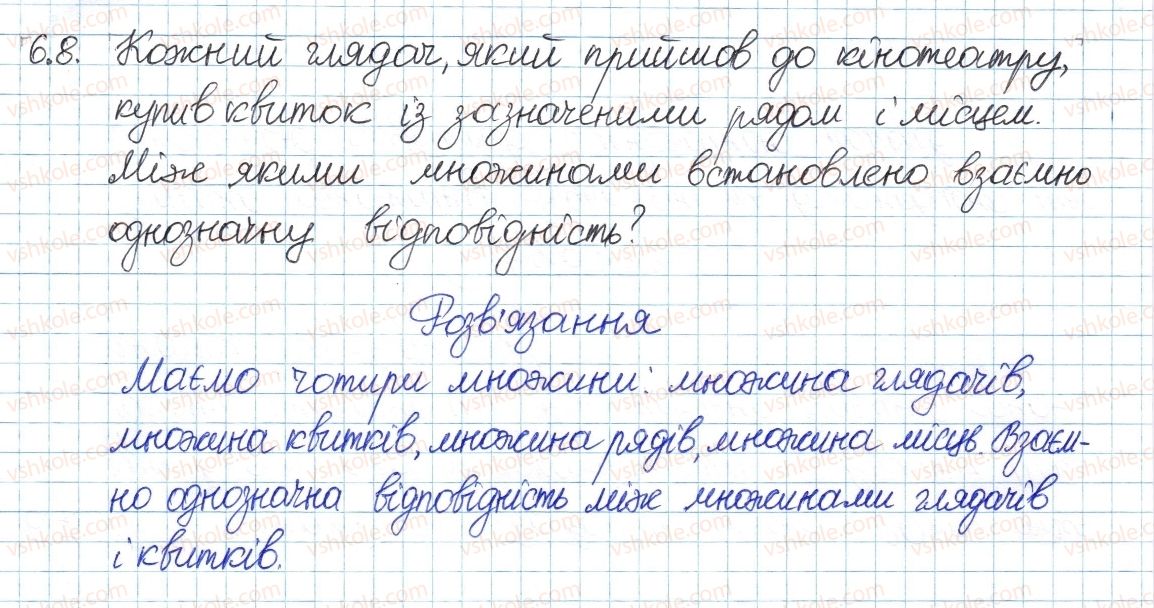 6.8. Кожний глядач, який прийшов до кінотеатру,
купив квиток із зазначеними рядом і місцем.
Між якими множинами встановлено взаємно
однозначну відповідність?
Розв'язання
Маємо чотири множини: множина глядачів,
множина квитків, множина рядів, множина місць. Взаєм-
но однозначна відповідність між множинами глядачів
і квитків.